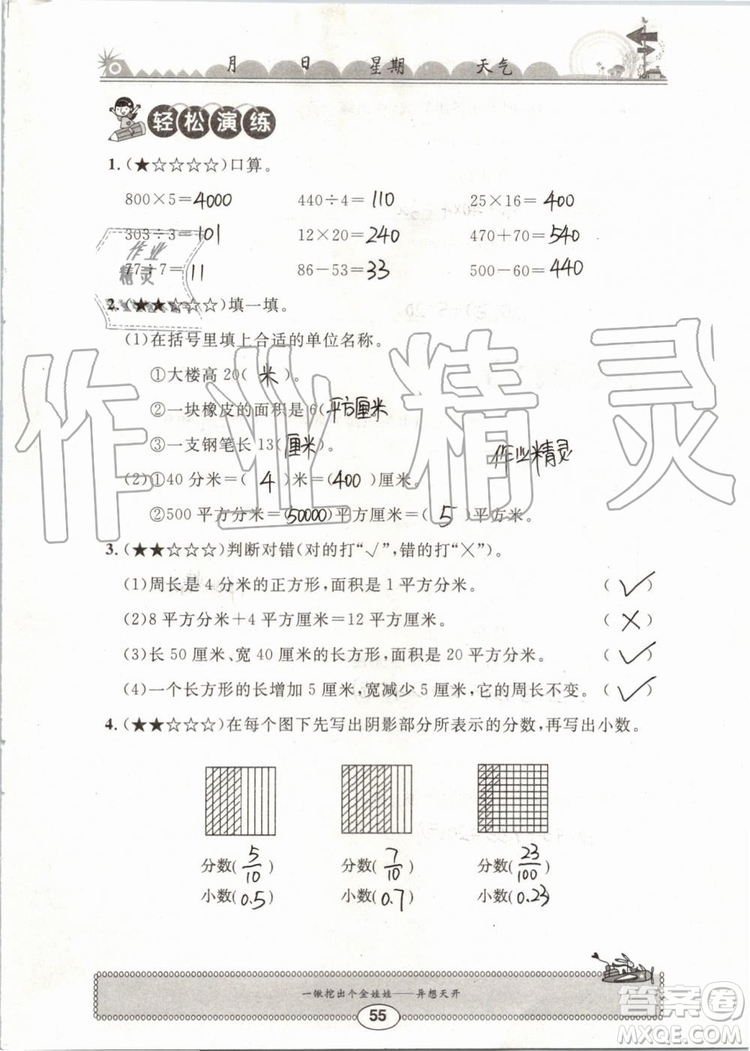 月 日 星期 天气
轻松演练
1.(★☆☆☆☆)口算。
800×5=4000 440÷4=110 25×16=400
303÷3=101 12×20=240 470+70=540
77÷7=11 86-53=33 500-60=440
作业
精灵
2.(★★☆☆☆)填一填。
(1)在括号里填上合适的单位名称。
①大楼高20(米)。
②一块橡皮的面积是6(平方厘米)
③一支钢笔长13(厘米)。
作业精灵
作业精灵
(2)①40分米=(4)米=(400)厘米。
②500平方分米=(50000)平方厘米=(5)平方米。
3.(★★☆☆☆)判断对错(对的打“√”,错的打“×”)。
(1)周长是4分米的正方形,面积是1平方分米。 (✓)
(2)8平方分米+4平方分米=12平方厘米。 (×)
(3)长50厘米、宽40厘米的长方形,面积是20平方分米。 (✓)
(4)一个长方形的长增加5厘米,宽减少5厘米,它的周长不变。 (✓)
4.(★★☆☆☆)在每个图下先写出阴影部分所表示的分数,再写出小数。
分数(5/10) 分数(7/10) 分数(23/100)
小数(0.5) 小数(0.7) 小数(0.23)
一锹挖出个金娃娃——异想天开
55
答案圈
MXQE.COM